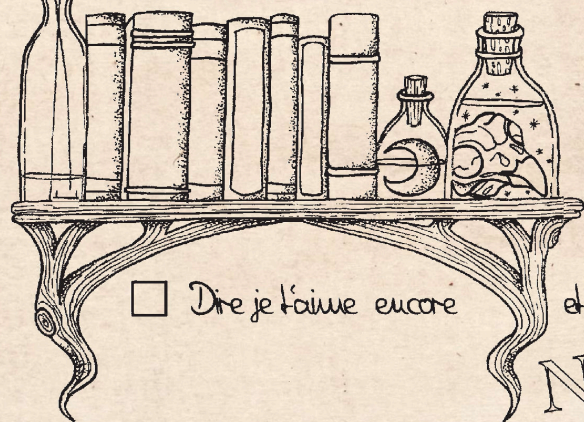 Dire je t'aime encore et
N